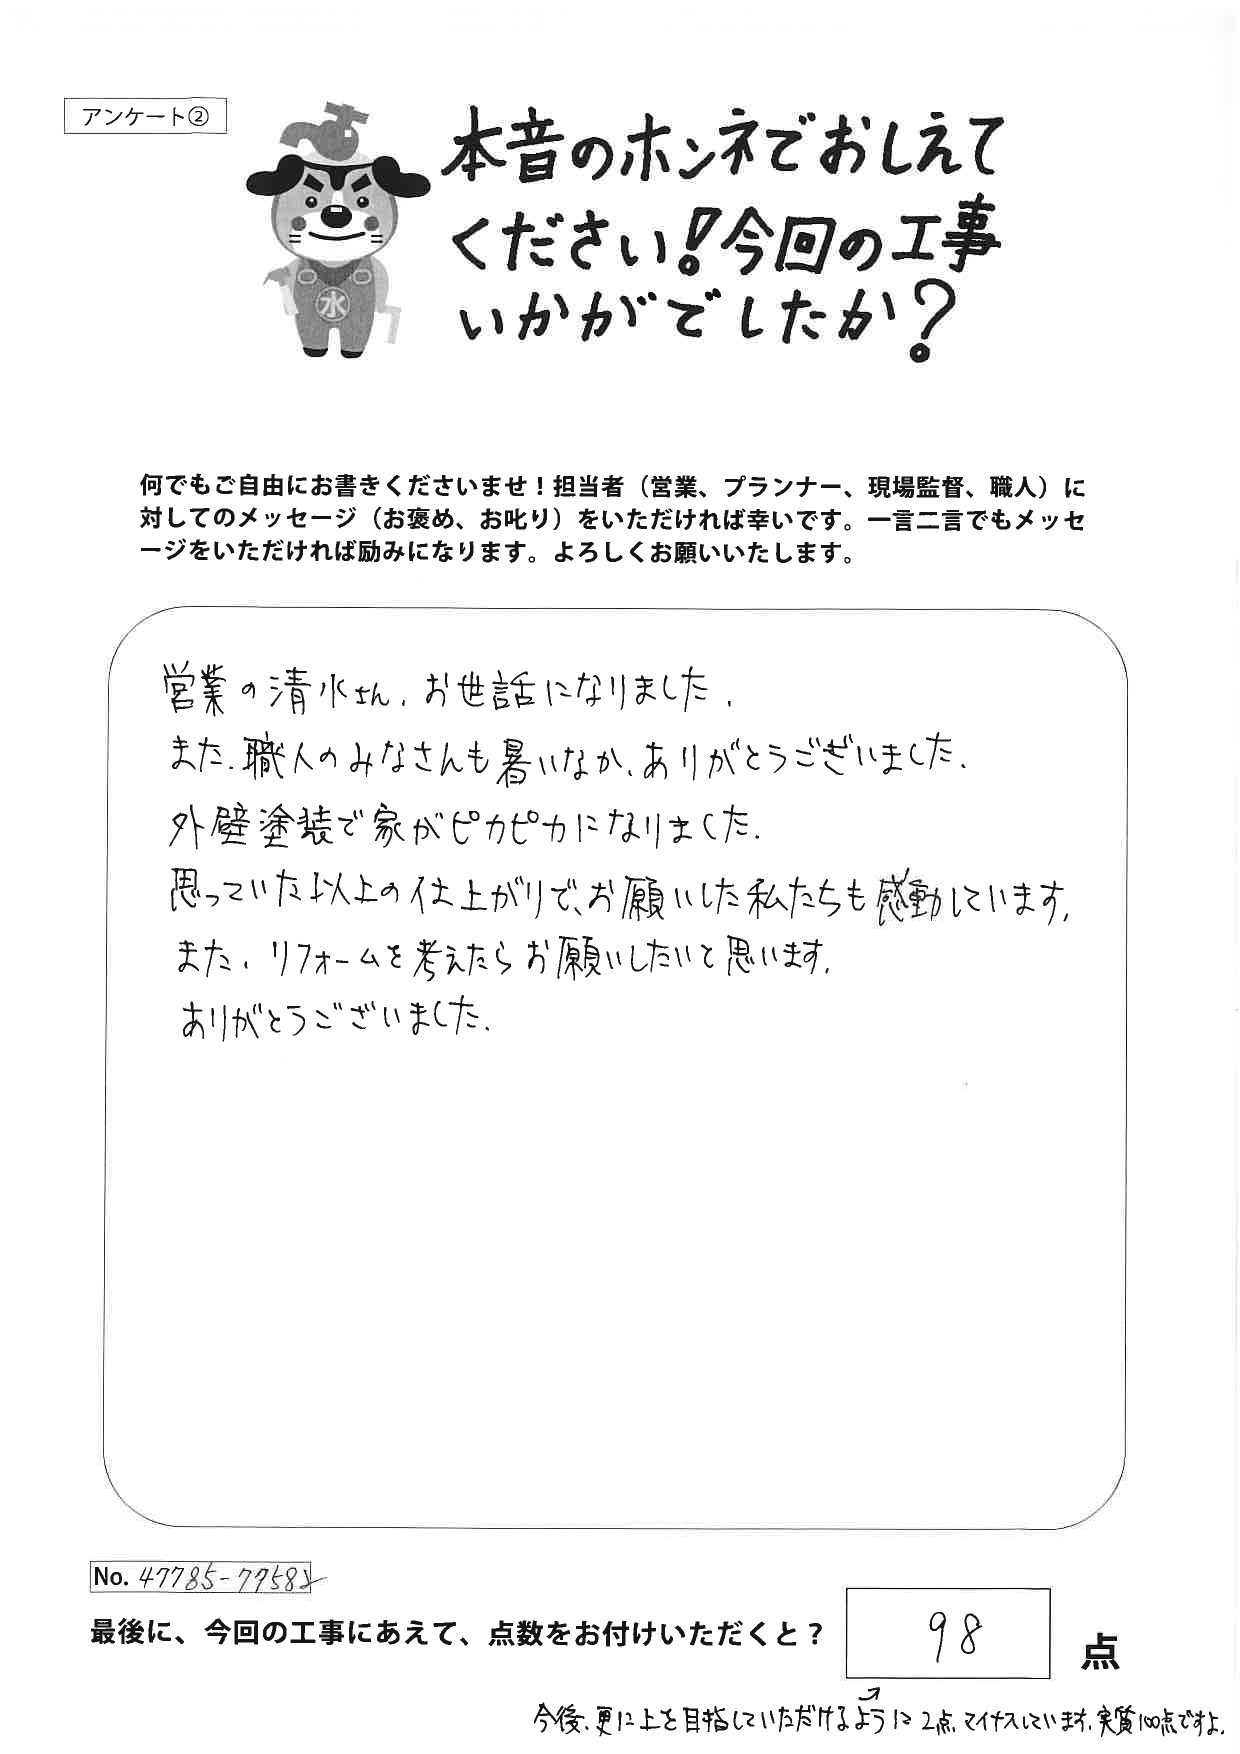 アンケート②
本音のホンネでおしえて
ください!今回の工事
いかがでしたか?
水
何でもご自由にお書きくださいませ！担当者（営業、プランナー、現場監督、職人）に
対してのメッセージ（お褒め、お叱り）をいただければ幸いです。一言二言でもメッセ
ージをいただければ励みになります。よろしくお願いいたします。
営業の清水さん、お世話になりました。
また、職人のみなさんも暑いなか、ありがとうございました。
外壁塗装で家がピカピカになりました。
思っていた以上の仕上がりで、お願いした私たちも感動しています。
また、リフォームを考えたらお願いしたいと思います。
ありがとうございました。
No. 47785-77582
最後に、今回の工事にあえて、点数をお付けいただくと？
98 点
今後、更に上を目指していただけるように2点マイナスしています、実質100点ですよ。